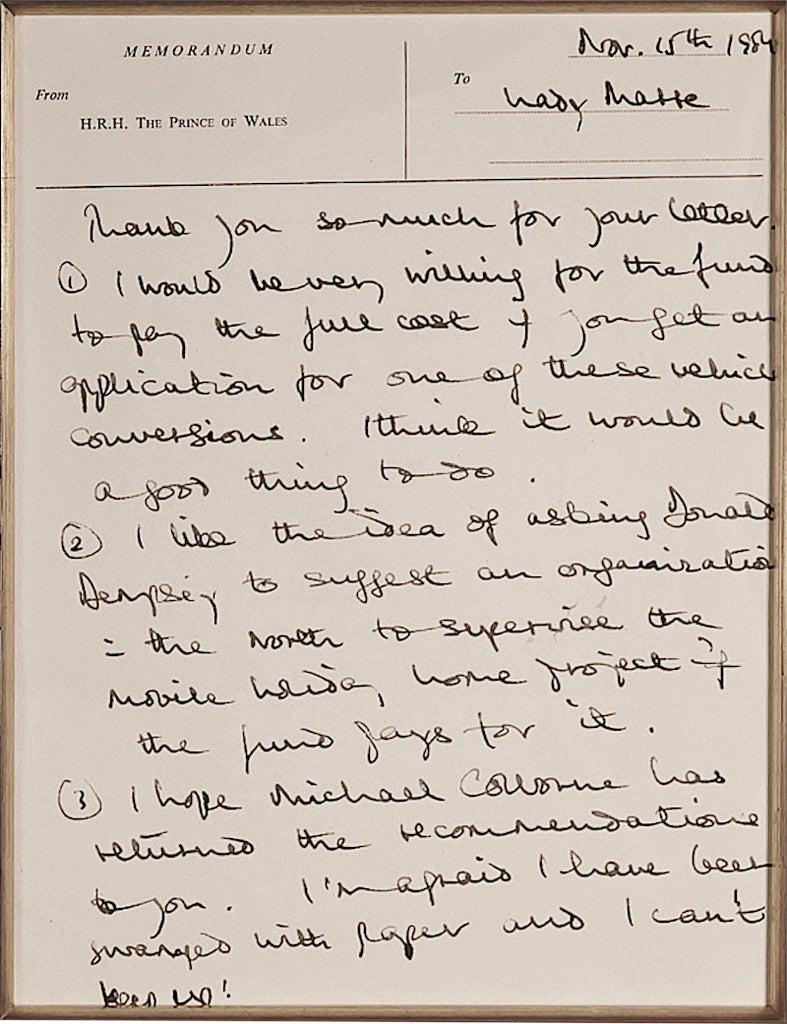 MEMORANDUM
Nov. 15th 1984
From
To
Lady
H.R.H. THE PRINCE OF WALES
Thank you so much for your letter.
① I would be very willing for the fund
to pay the full cost if you get an
application for one of these vehicle
conversions. I think it would be
a good thing to do.
② I like the idea of asking Donald
Dempsey to suggest an organization
in the North to supervise the
mobile holiday home project if
the fund pays for it.
③ I hope Michael Colborne has
returned the recommendations
to you. I'm afraid I have been
swamped with paper and I can't
keep up!